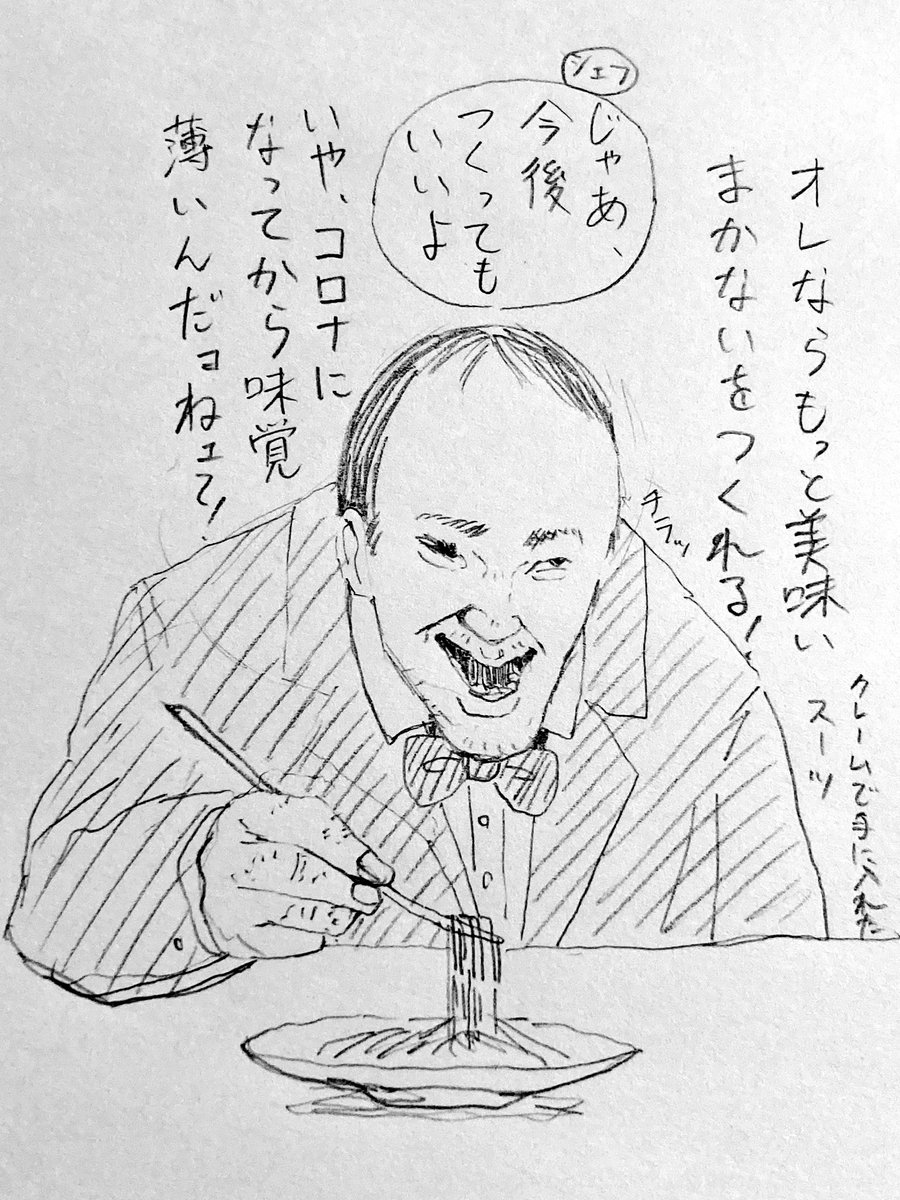 オレならもっと美味い
まかないをつくれる!
シェフ
じゃあ、
今後
つくっても
いいよ
いや、コロナに
なってから味覚
薄いんだョねェて!
チラッ
クレームで手に入れた
スーツ